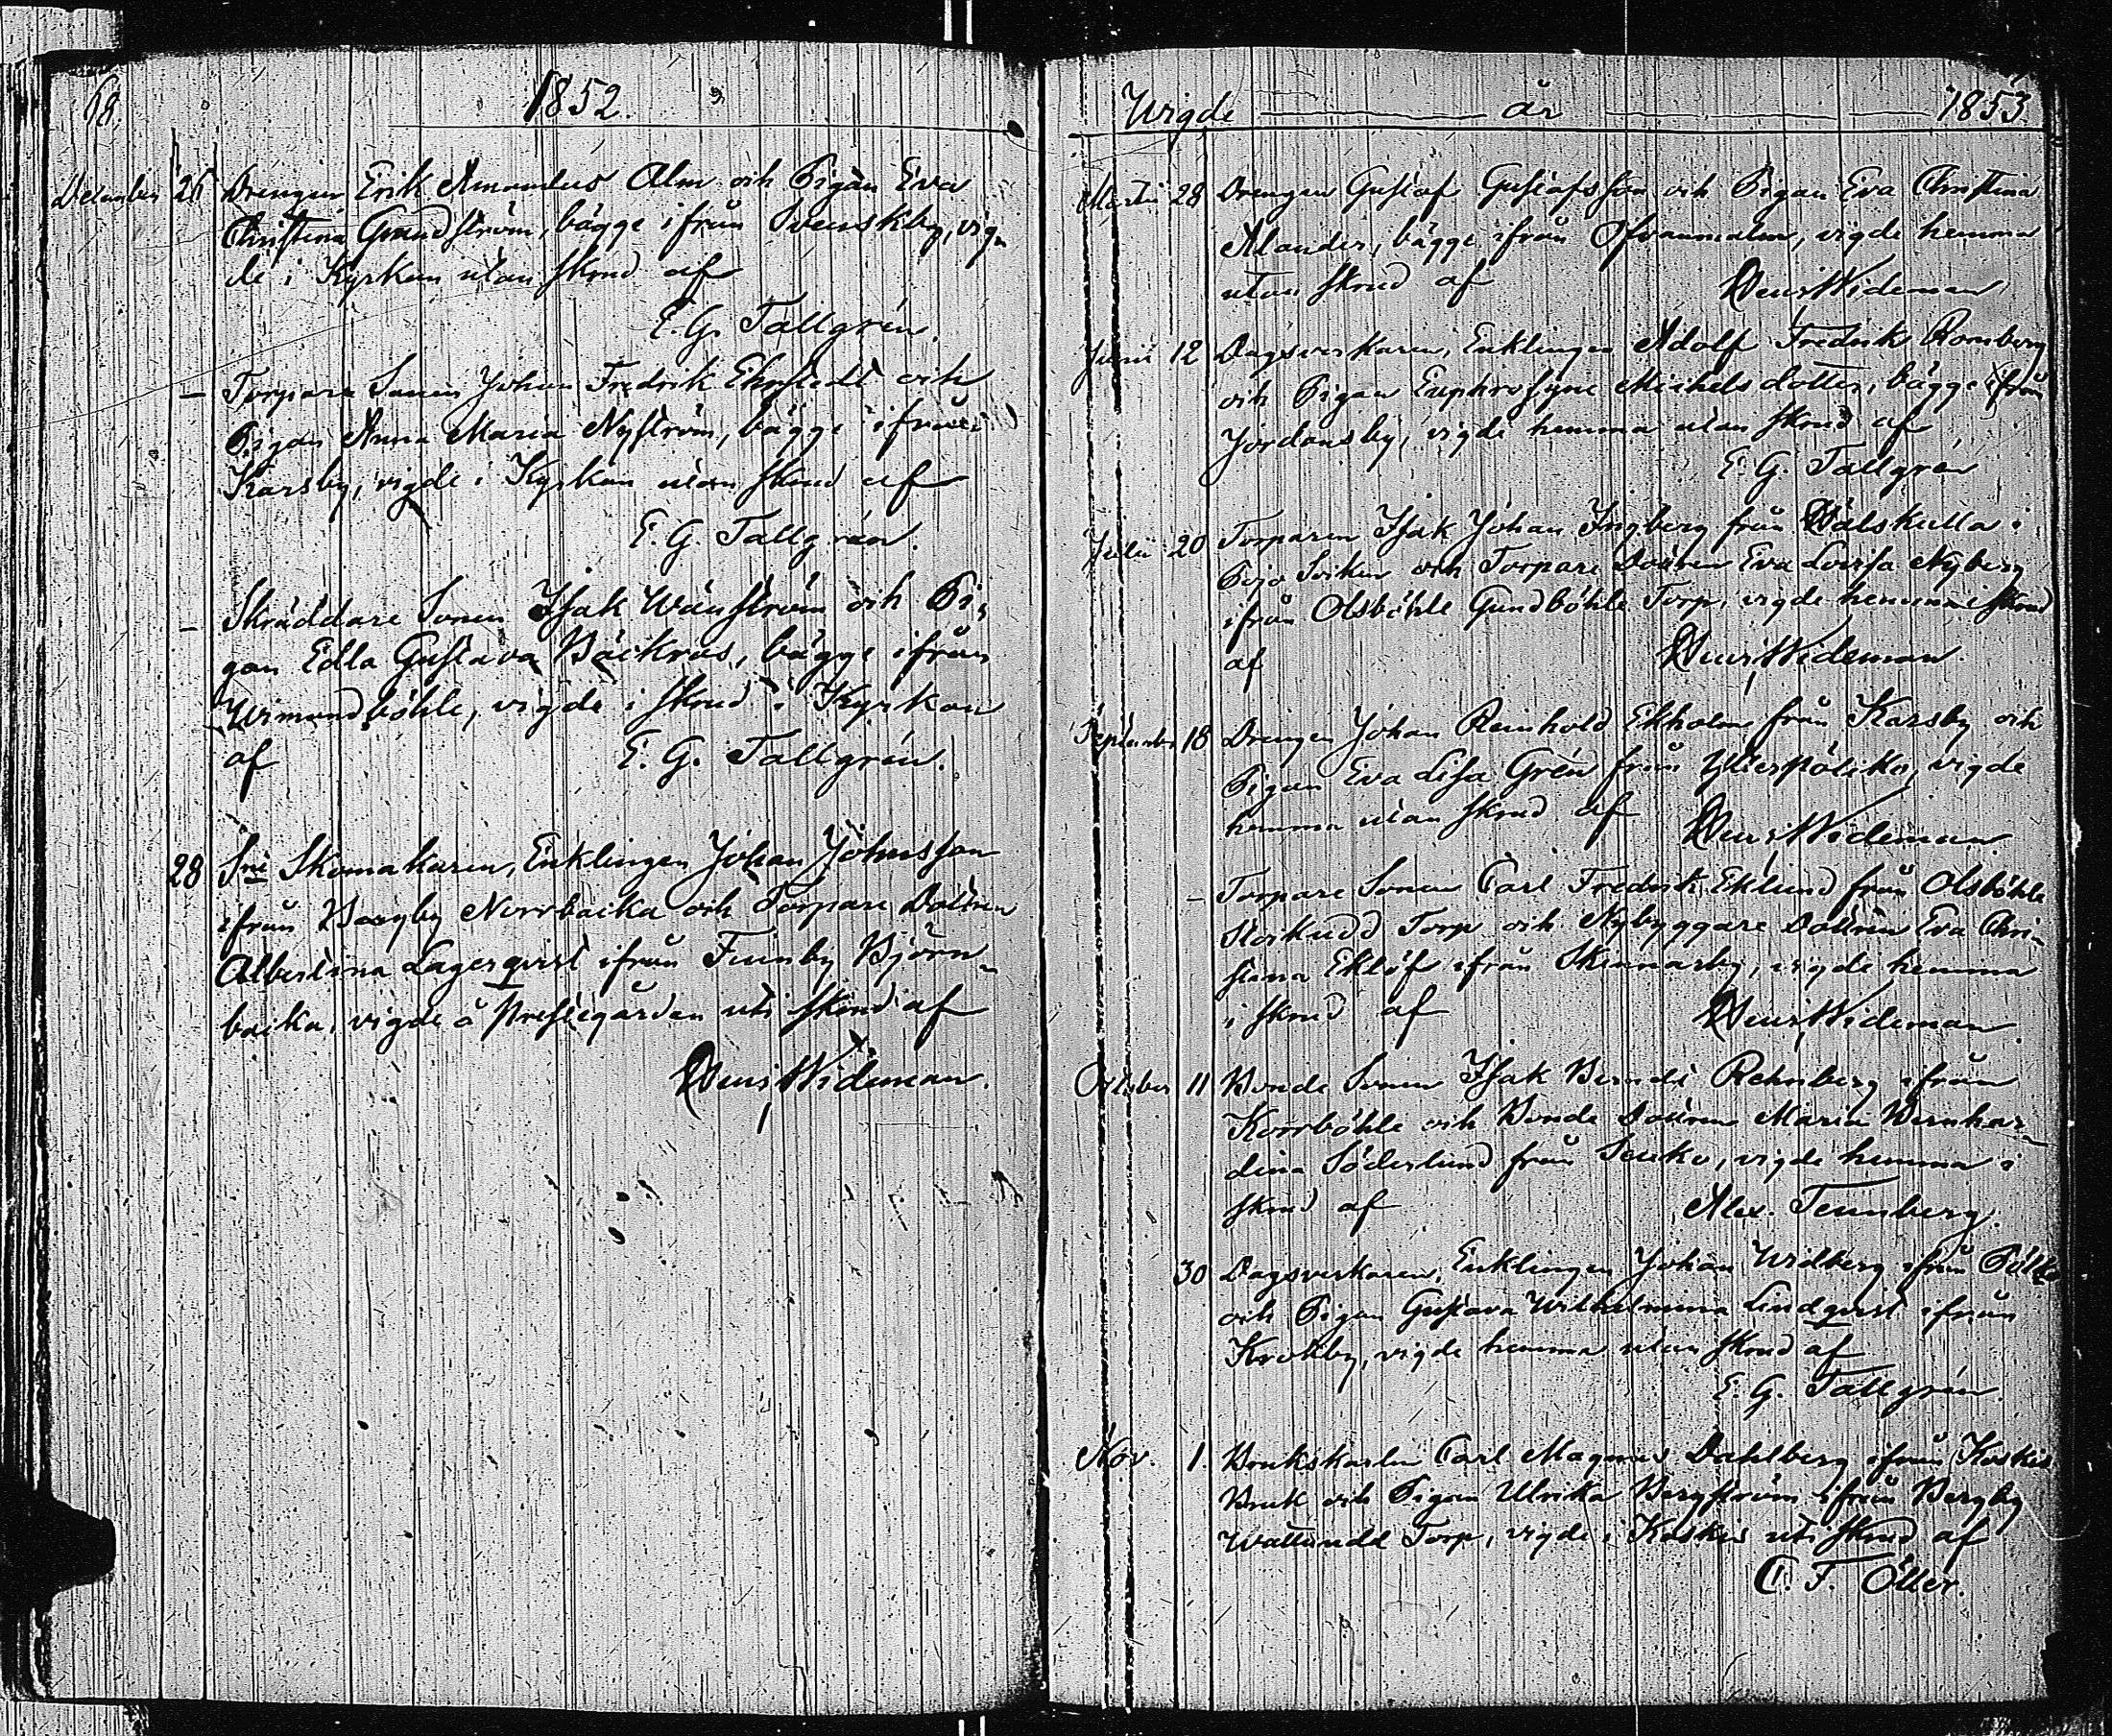 68.
1852.
December 26 Drengen Erik Amandus Alm och Pigan Eva
Christina Grundström, bägge ifrån Svenskby, vig-
de i Kyrkan utan skrud af
E. G. Tallgrén.
— Torpare Sonen Johan Fredrik Ehrstedt och
Pigan Anna Maria Nyström, bägge ifrån
Karsby, vigde i Kyrkan utan skrud af
E. G. Tallgrén.
— Skräddare Sonen Isak Wänström och Pi-
gan Edla Gustava Bäckros, bägge ifrån
böhle, vigde i skrud i Kyrkan
af E. G. Tallgrén.
28 Skomakaren, Enklingen Johan Johnsson
ifrån Norrbacka och Torpare Dottren
Albertina Lagerqvist ifrån Finnby Björn-
backa, vigde å Prestegården uti skrud af
Wideman.
Wigde år 1853.
Martii 28 Drengen Gustaf Gustafsson och Pigan Eva Christina
Alander, bägge ifrån Ofvanmalm, vigde hemma
utan skrud af Wideman
Junii 12 Dagsverkaren, Enklingen Adolf Fredrik Romberg
och Pigan Euphrosyne Michelsdotter, bägge ifrån
Jordansby, vigde hemma utan skrud af
E. G. Tallgrén
Julii 20 Torparen Isak Johan Ingberg från Dalskulla i
Pojo Socken och Torpare Dottren Eva Lovisa Nyberg
ifrån Olsböhle Gundböhle Torp, vigde hemma i skrud
af Wideman.
September 18 Drengen Johan Reinhold Ekholm från Karsby och
Pigan Eva Lisa Grén från vigde
hemma utan skrud af Wideman
— Torpare Sonen Carl Fredrik Eklund från Olsböhle
Torp och Nybyggare Dottren Eva Chri-
stina Eklöf ifrån Skinnarby, vigde hemma
i skrud af Wideman
October 11 Bonde Sonen Isak Berndt Rehnberg ifrån
Korrböhle och Bonde Dottren Maria Bernhar-
dina Söderlund från Seuko, vigde hemma i
skrud af Alex. Tennberg.
30 Dagsverkaren, Enklingen Johan Widberg ifrån
och Pigan Gustava Wilhelmina Lindqvist ifrån
Krokby, vigde hemma utan skrud af
E. G. Tallgrén
Nov. 1. Brukskarlen Carl Magnus Dahlberg ifrån Koskis
Bruk och Pigan Ulrika Bergström ifrån Bergby
Torp, vigde i Koskis uti skrud af
C. F. Öller.